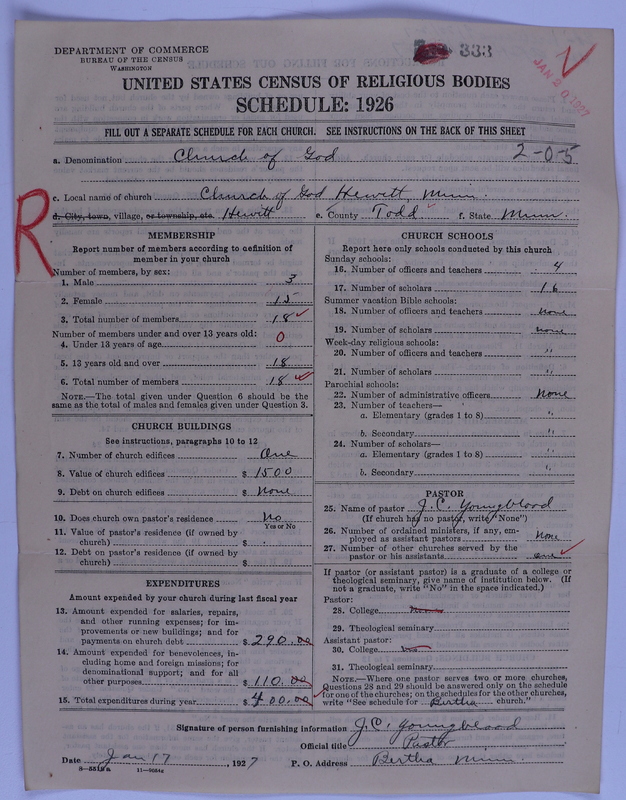 DEPARTMENT OF COMMERCE
BUREAU OF THE CENSUS
WASHINGTON
333
JAN 20 1927
UNITED STATES CENSUS OF RELIGIOUS BODIES
SCHEDULE: 1926
FILL OUT A SEPARATE SCHEDULE FOR EACH CHURCH. SEE INSTRUCTIONS ON THE BACK OF THIS SHEET
a. Denomination Church of God 2-0-5
c. Local name of church Church of God Hewitt Minn.
d. City, town, village, or township, etc. Hewitt e. County Todd f. State Minn.
R
MEMBERSHIP
Report number of members according to definition of member in your church
Number of members, by sex:
1. Male 3
2. Female 15
3. Total number of members 18
Number of members under and over 13 years old:
4. Under 13 years of age 0
5. 13 years old and over 18
6. Total number of members 18
NOTE.—The total given under Question 6 should be the
same as the total of males and females given under Question 3.
CHURCH BUILDINGS
See instructions, paragraphs 10 to 12
7. Number of church edifices One
8. Value of church edifices $ 1500
9. Debt on church edifices $ None
10. Does church own pastor's residence No
Yes or No
11. Value of pastor's residence (if owned by
church) $
12. Debt on pastor's residence (if owned by
church) $
EXPENDITURES
Amount expended by your church during last fiscal year
13. Amount expended for salaries, repairs,
and other running expenses; for im-
provements or new buildings; and for
payments on church debt $ 290.00
14. Amount expended for benevolences, in-
cluding home and foreign missions; for
denominational support; and for all
other purposes $ 110.00
15. Total expenditures during year $ 400.00
CHURCH SCHOOLS
Report here only schools conducted by this church
Sunday schools:
16. Number of officers and teachers 4
17. Number of scholars 16
Summer vacation Bible schools:
18. Number of officers and teachers none
19. Number of scholars none
Week-day religious schools:
20. Number of officers and teachers "
21. Number of scholars "
Parochial schools:
22. Number of administrative officers None
23. Number of teachers—
a. Elementary (grades 1 to 8) "
b. Secondary "
24. Number of scholars—
a. Elementary (grades 1 to 8) "
b. Secondary "
PASTOR
25. Name of pastor J. C. Youngblood
(If church has no pastor, write "None")
26. Number of ordained ministers, if any, em-
ployed as assistant pastors None
27. Number of other churches served by the
pastor or his assistants one
If pastor (or assistant pastor) is a graduate of a college or
theological seminary, give name of institution below. (If
not a graduate, write "No" in the space indicated.)
Pastor:
28. College
29. Theological seminary
Assistant pastor:
30. College No
31. Theological seminary
NOTE.—Where one pastor serves two or more churches,
Questions 28 and 29 should be answered only on the schedule
for one of the churches; on the schedules for the other churches,
write "See schedule for Bertha church."
Signature of person furnishing information J. C. Youngblood
Official title Pastor
Date Jan 17, 1927 P. O. Address Bertha Minn.